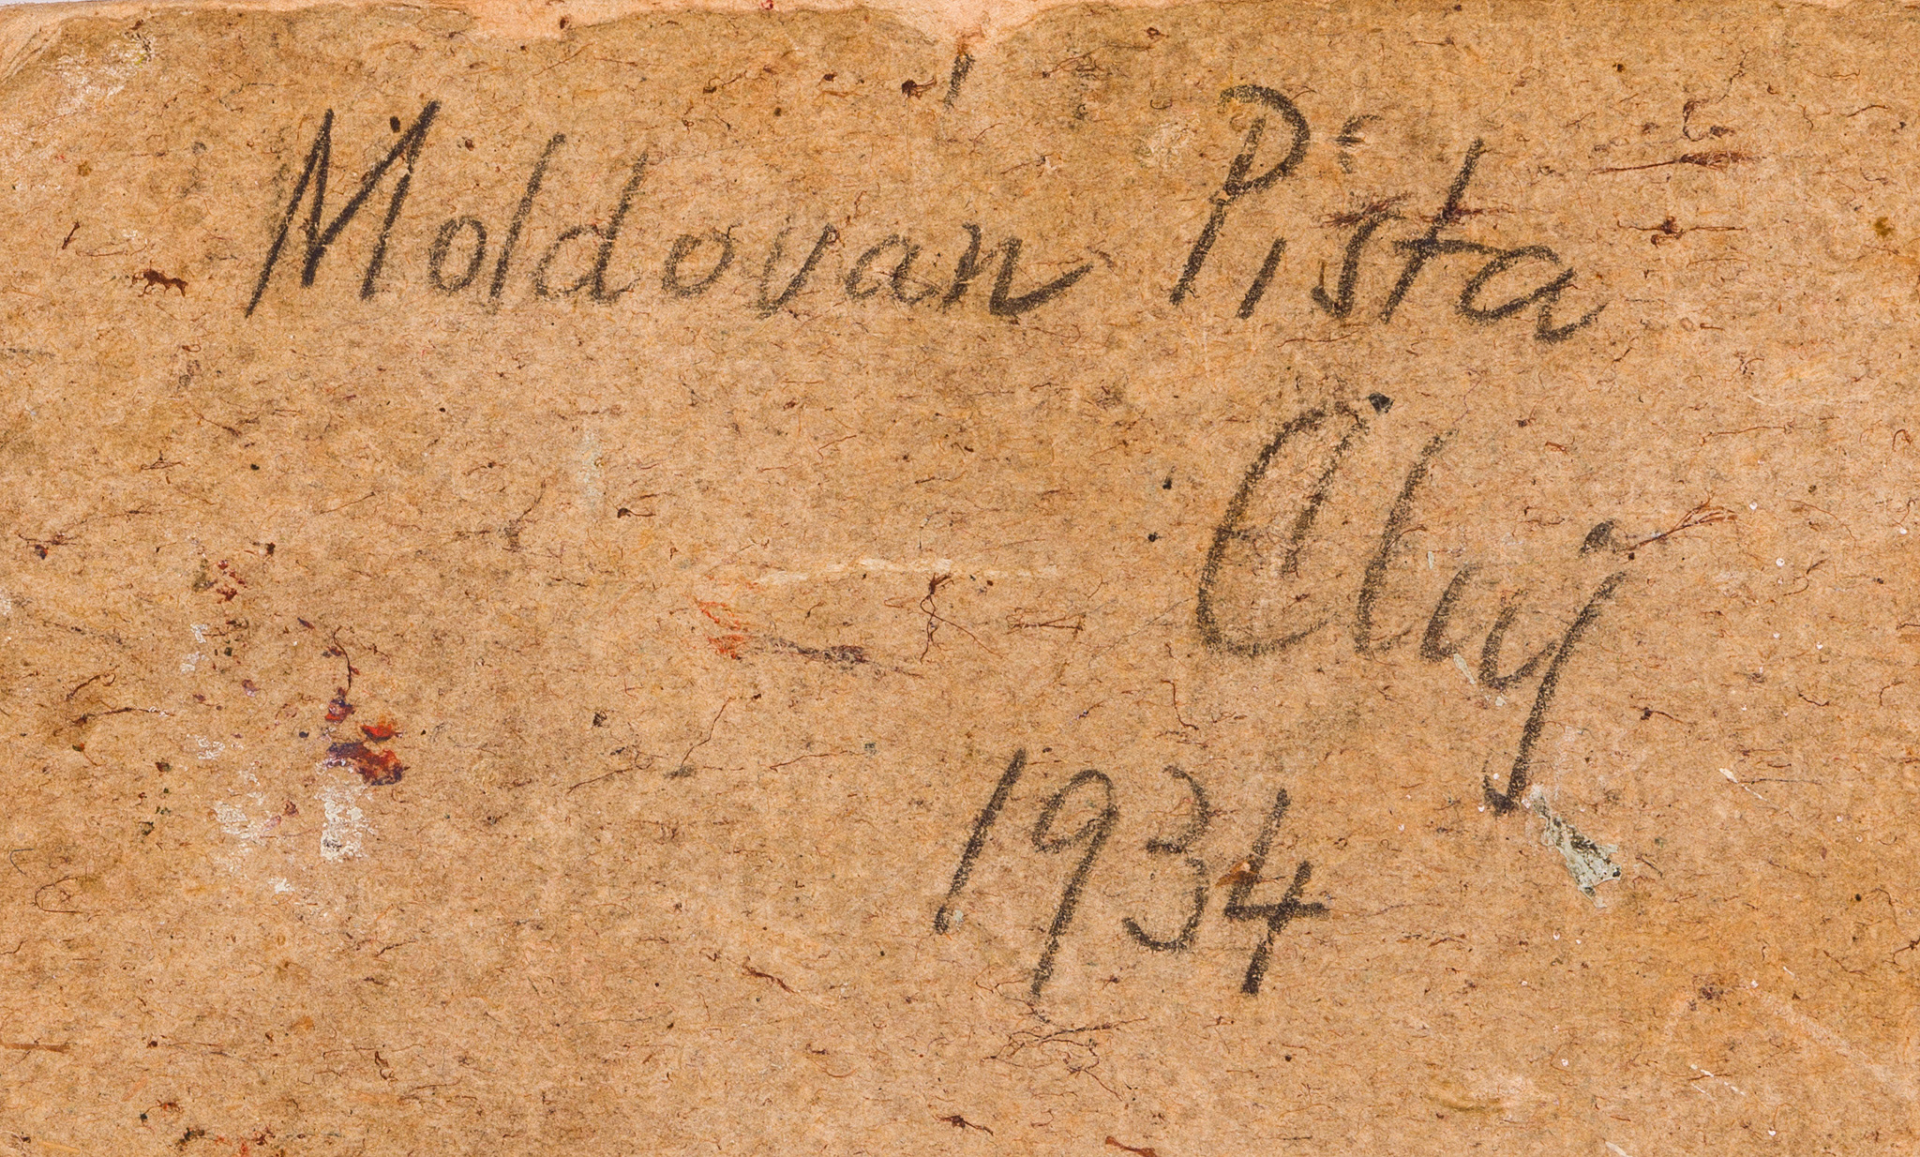 Moldován Pista
Cluj
1934